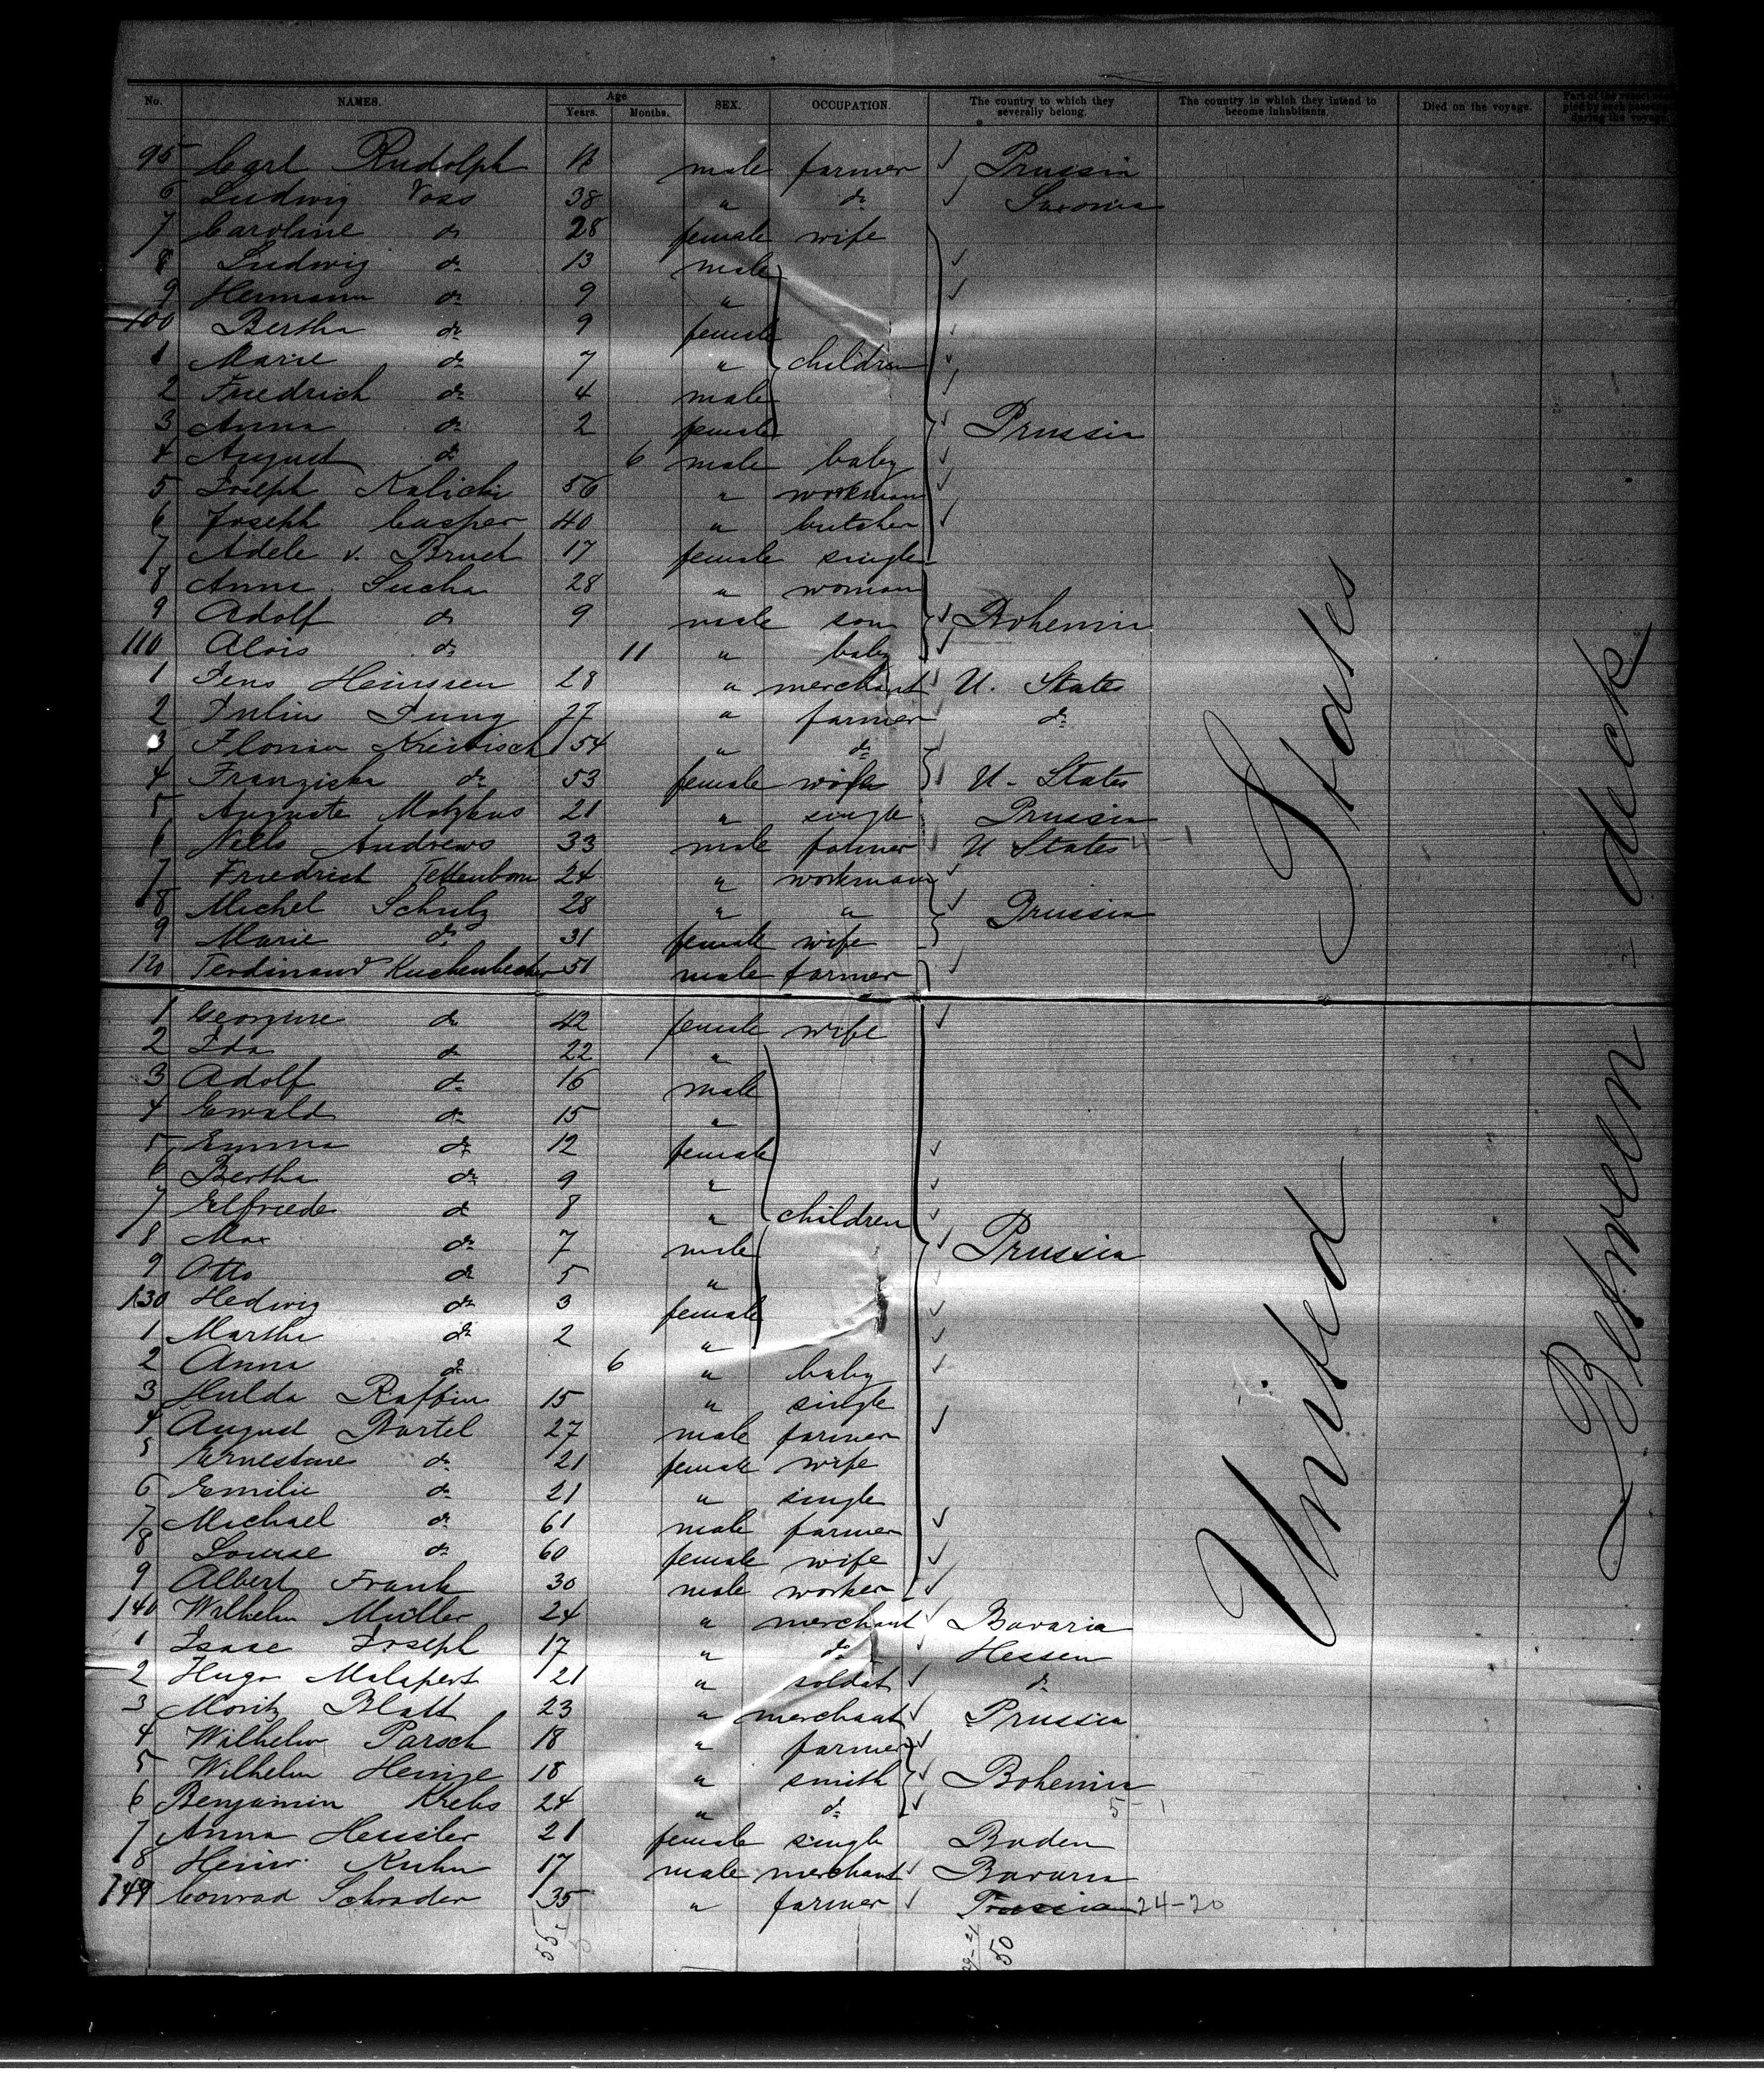 No. NAMES. Age Years. Months. SEX. OCCUPATION. The country to which they severally belong. The country in which they intend to become inhabitants. Died on the voyage. Part of the vessel occupied by each passenger during the voyage.
95 Carl Rudolph male farmer Prussia
6 Ludwig Voss 38 " do Saxonia
7 Caroline do 28 female wife
8 Ludwig do 13 male
9 Hermann do 9 "
100 Bertha do 9 female
1 Marie do 7 " children
2 Friedrich do 4 male
3 Anna do 2 female Prussia
4 August do 6 male baby
5 Joseph Kalicki 56 " workman
6 Joseph Casper 40 " butcher
7 Adele v. Bruch 17 female single
8 Anna Sucha 28 " woman
9 Adolf do 9 male son Bohemia
110 Alois do 11 " baby
1 Jens Heinssen 28 " merchant U. States
2 Julius Jung 27 " farmer do
3 Florian Kreibisch 54 " do
4 Franziska do 53 female wife U. States
5 Auguste Matzkus 21 " single Prussia
6 Niels Andrews 33 male farmer U States
7 Friedrich Tettenborn 24 " workman
8 Michel Schulz 28 " " Prussia
9 Marie do 31 female wife
120 Ferdinand Kuchenbecker 51 male farmer
1 Georgine do 42 female wife
2 Ida do 22 "
3 Adolf do 16 male
4 Ewald do 15 "
5 Emma do 12 female
6 Bertha do 9 "
7 Elfriede do 8 " children
8 Max do 7 male Prussia
9 Otto do 5 "
130 Hedwig do 3 female
1 Martha do 2 "
2 Anna do 6 " baby
3 Hulda Raffin 15 " single
4 August Bartel 27 male farmer
5 Ernestine do 21 female wife
6 Emilie do 21 " single
7 Michael do 61 male farmer
8 Louise do 60 female wife
9 Albert Frank 30 male worker
140 Wilhelm Müller 24 " merchant Bavaria
1 Isaac Joseph 17 " do Hessen
2 Hugo Malapert 21 " soldat do
3 Moritz Blatt 23 " merchant Prussia
4 Wilhelm Parsch 18 " farmer
5 Wilhelm Heinze 18 " smith Bohemia
6 Benjamin Krebs 24 " do
7 Anna Heusler 21 female single Baden
8 Heinr. Kuhn 17 male merchant Bavaria
149 Conrad Schrader 35 " farmer Prussia 24-20
55
50
United States
Between-deck